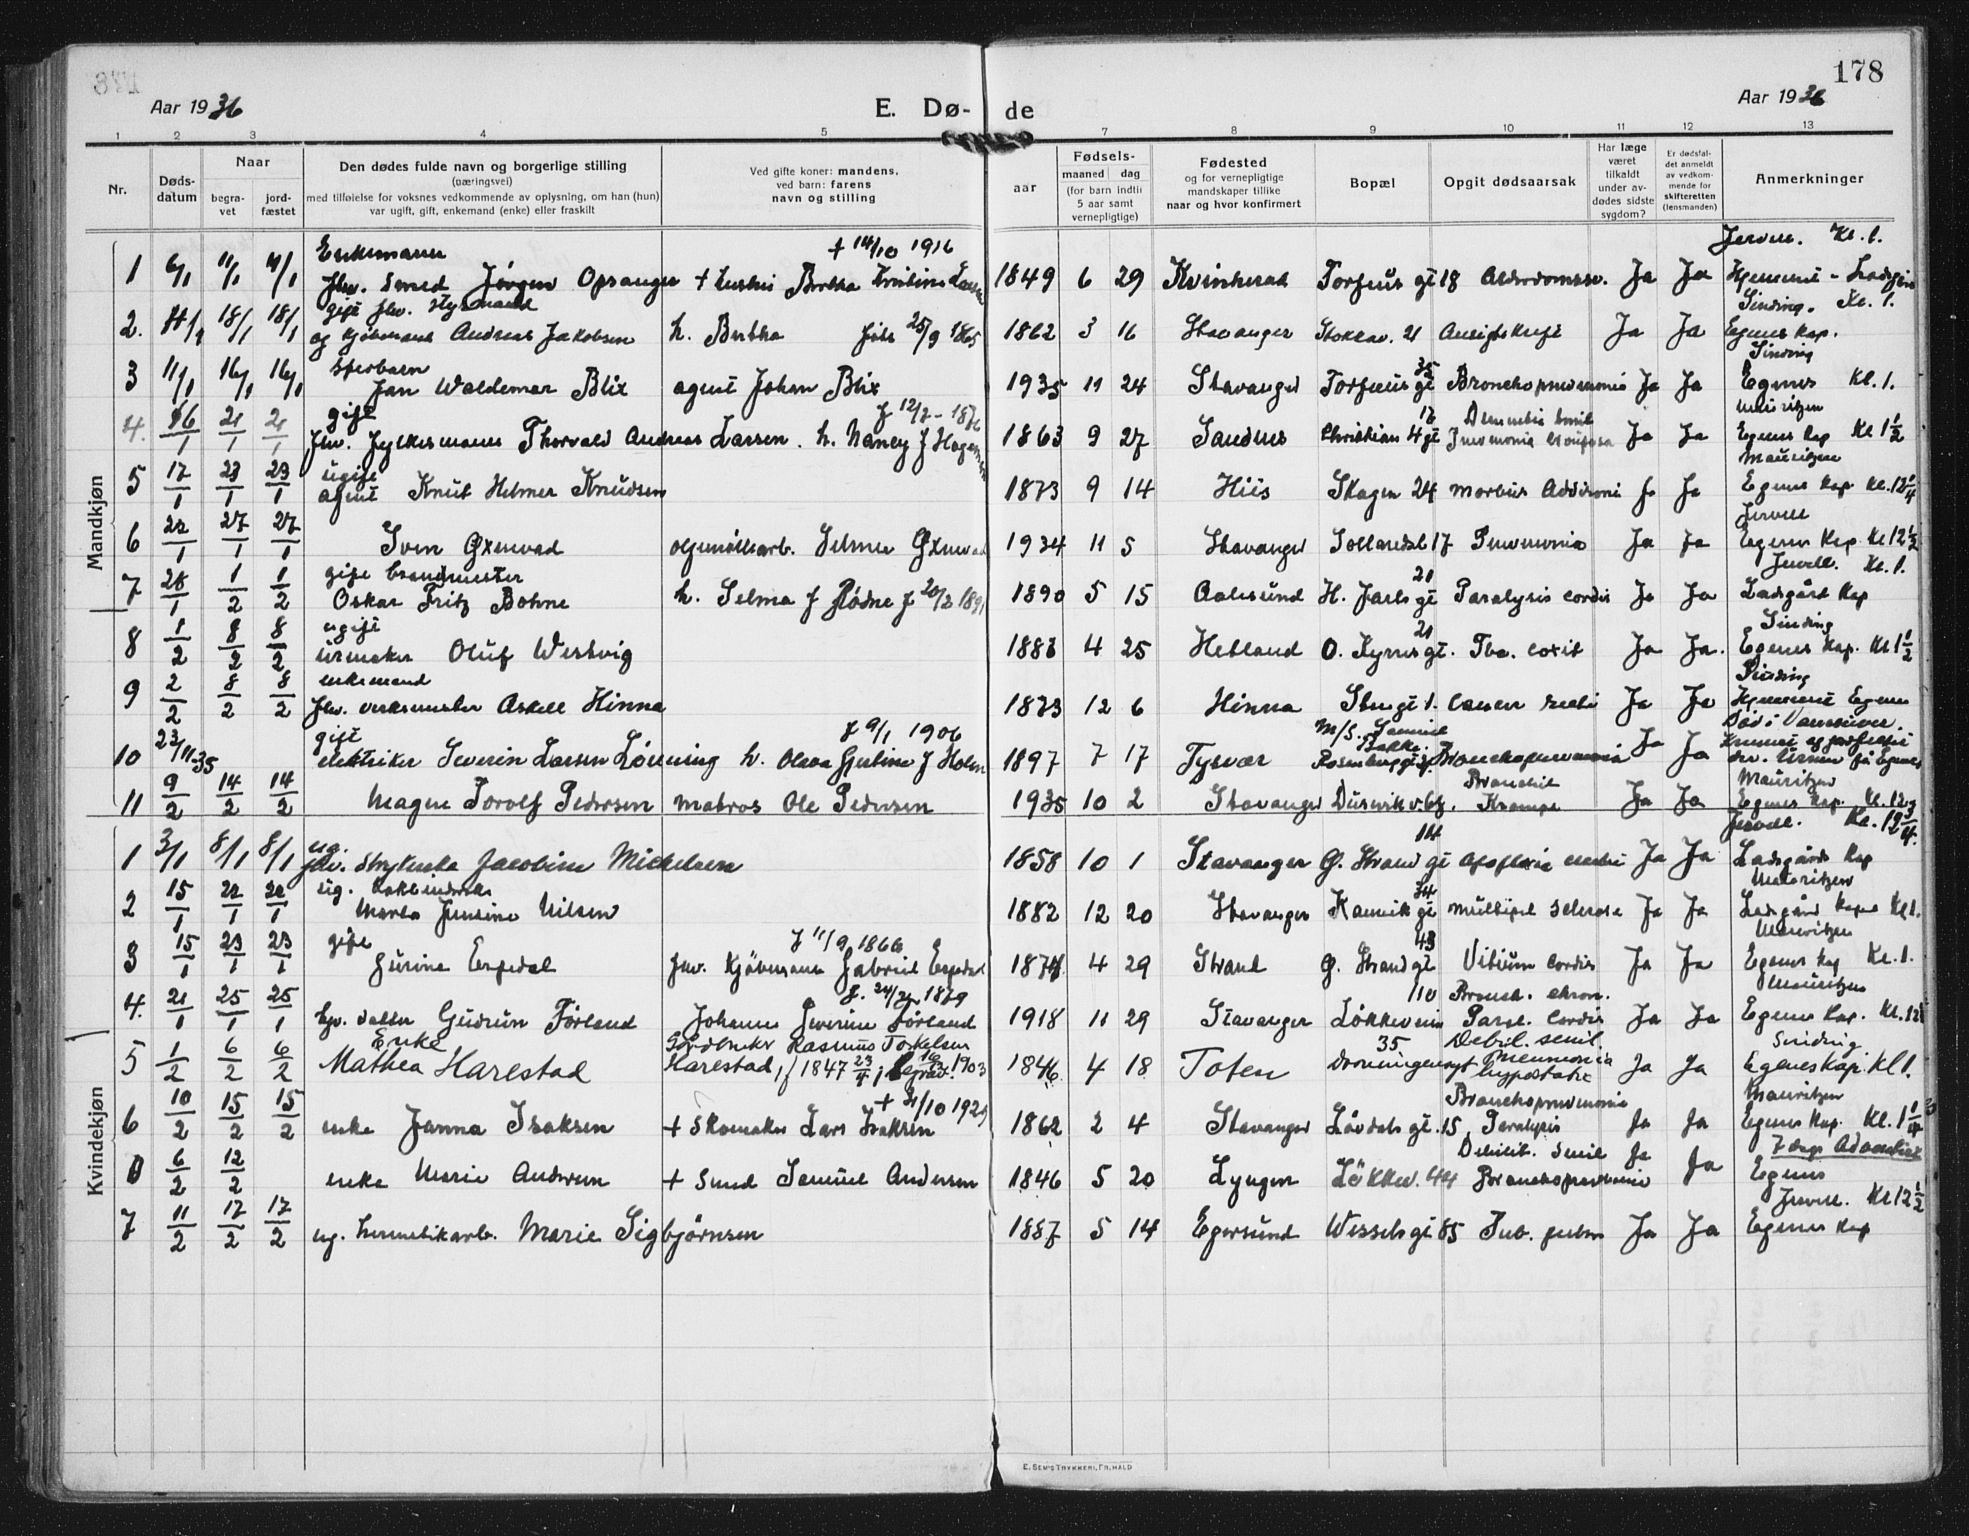 178
Aar 1936 E. Dø- de Aar 1936
1 2 3 4 5 7 8 9 10 11 12 13
Nr. Døds-datum Naar begra-vet jord-fæstet Den dødes fulde navn og borgerlige stilling (næringsvei) med tilføielse for voksnes vedkommende av oplysning, om han (hun) var ugift, gift, enkemand (enke) eller fraskilt Ved gifte koner: mandens, ved barn: farens navn og stilling aar Fødsels- maaned dag (for barn indtil 5 aar samt vernepligtige) Fødested og for vernepligtige mandskaper tillike naar og hvor konfirmert Bopæl Opgit dødsaarsak Har læge været tilkaldt under av-dødes sidste sygdom? Er dødsfal-det anmeldt av vedkom-mende for skifteretten (lensmanden) Anmerkninger
Mandkjøn
Enkemann † 14/10 1916 Jervell. Kl. 1.
1 6/1 11/1 11/1 fhv. smed Jørgen Opsanger + hustru Bertha Kristine 1849 6 29 Kvinherad Torfæus gt 18 Alderdomssv. Ja Ja Hjemmet - Ladegård
gift fhv. Sinding. Kl. 1.
2. 11/1 18/1 18/1 og kjøbmand Andreas Jakobsen h. Bertha født 25/9 1865 1862 3 16 Stavanger Stokkav. 21 Ja Ja Egenes kap.
spedbarn Sinding
3 11/1 16/1 16/1 Jan Waldemar Blix agent Johan Blix 1935 11 24 Stavanger Torfæus gt 35 Bronchopneumonia Ja Ja Egenes Kl. 1.
gift f 12/7 - 1876 Dementia senil Mauritzen
4. 16/1 21/1 21/1 fhv. Thorvald Andreas Larsen. h. Nancy f Hagemann 1863 9 27 Sandnes Christian 4 gt 17 Pneumonia Crouposa Ja Ja Egenes Kap Kl 1 1/2
ugift Mauritzen
5 17/1 23/1 23/1 agent Knut Helmer Knudsen 1873 9 14 Hiis Skagen 24 Morbus Addisoni Ja Ja Egenes Kap Kl. 12 1/4
Jervell
6 22/1 27/1 27/1 Sven Øxnevad oljemøllearb. Selmer Øxnevad 1934 11 5 Stavanger Solbaredal 17 Pneumonia Ja Ja Egenes Kap Kl 12 1/2
gift brandmester Jervell. Kl. 1.
7 28/1 1/2 1/2 Oskar Fritz Bohne h. Selma f Rødne f 20/2 1891 1890 5 15 Aalesund H. Jarls gt 21 Paralysis cordis Ja Ja Ladegård Kap
ugift Sinding
8 1/2 8/2 8/2 urmaker Oluf Westvig 1883 4 25 Hetland O. Kyrres gt. 21 Tbc. coxit Ja Ja. Egenes Kap. Kl 1 1/2
enkemand Sinding
9 2/2 8/2 8/2 fhv. verksmester Askell Hinna 1873 12 6 Hinna Stengt 1. Cancer recti Ja Ja Hjemmet Egenes
gift f 9/1 1906 M/S. Samuel Bakke Død i Vancouver.
10 23/11-35 elektriker Severin Larsen Lønning h. Olava Gjertine f Holm 1897 7 17 Tysvær Rosenberggt Bronchopneumonia Ja Ja Kremert og jordfestet Urnen på Egenes
Bronchit Mauritzen
11 9/2 14/2 14/2 Magne Torolf Pedersen matros Ole Pedersen 1935 10 2 Stavanger Dusevik v. 6 Krampe Ja Ja Egenes Kap. Kl. 12
Kvindekjøn
ug. Jervell. Kl. 12 3/4.
1 3/1 8/1 8/1 fhv. strykerske Jacobine Mickelsen 1858 10 1 Stavanger Ø. Strand gt 14 Apoplexia cerebri Ja Ja Ladegårds Kap
ug. bokbinderske Mauritzen
2 15/1 22/1 22/1 Marta Jensine Nilsen 1882 12 20 Stavanger Kannik gt 34 Multipel sclerose Ja Ja Ladegård Kapel Kl 1.
gift f 11/9 1866 Mauritzen
3 15/1 23/1 23/1 Gurine Espedal fhv. Kjøbmann Gabriel Espedal 1874 4 29 Strand Ø. Strand gt 43 Vitium Cordis Ja Ja Egenes Kap Kl. 1.
f. 1879 Bronch. chron. Mauritzen
4. 21/1 25/1 25/1 hv. datter Gudrun Førland Johannes Severin Førland 1918 11 29 Stavanger Løkkeveien 110 Paral. Cordis Ja Ja Egenes Kap. Kl. 12
Enke Gårdbruker Rasmus Torkelsen Debil. senil. Sinding
5 1/2 6/2 6/2 Mathea Harestad Harestad, f 1847 23/4, begrav. 1903 1846 4 18 Toten Dronningensgt 35 Pneumonia hypostatic Ja Ja Egeneskap. Kl 1.
† 21/10 1929 Bronchopneumonia Mauritzen
6 10/2 15/2 15/2 enke Janna Isaksen + Skomaker Lars Isaksen 1862 2 4 Stavanger Løvdals gt. 15 Paralysis Ja Ja Egenes Kap. Kl. 1 1/4
Debilit. senil 7 dags Adventist
0 6/2 12/2 enke Marie Andersen + Smed Samuel Andersen 1846 5 20 Lyngen Løkkev. 44 Bronchopneumonia Ja Ja Egenes
Jervell. Kl 12 1/2
7 11/2 17/2 17/2 ug. hermetikarb. Marie Sigbjørnsen 1887 5 14 Egersund Wessels gt 85 Tub. pulm Ja Ja Egenes Kap
E. SEM'S TRYKKERI, FR. HALD